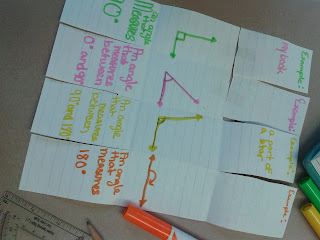 An angle
that
measures
90°
Example:
my book
An angle
that
measures
between
0° and 90°
Example:
An angle
that
measures
between
90° and 180°
Example:
a part of
a star
An angle
that
measures
180°
Example: